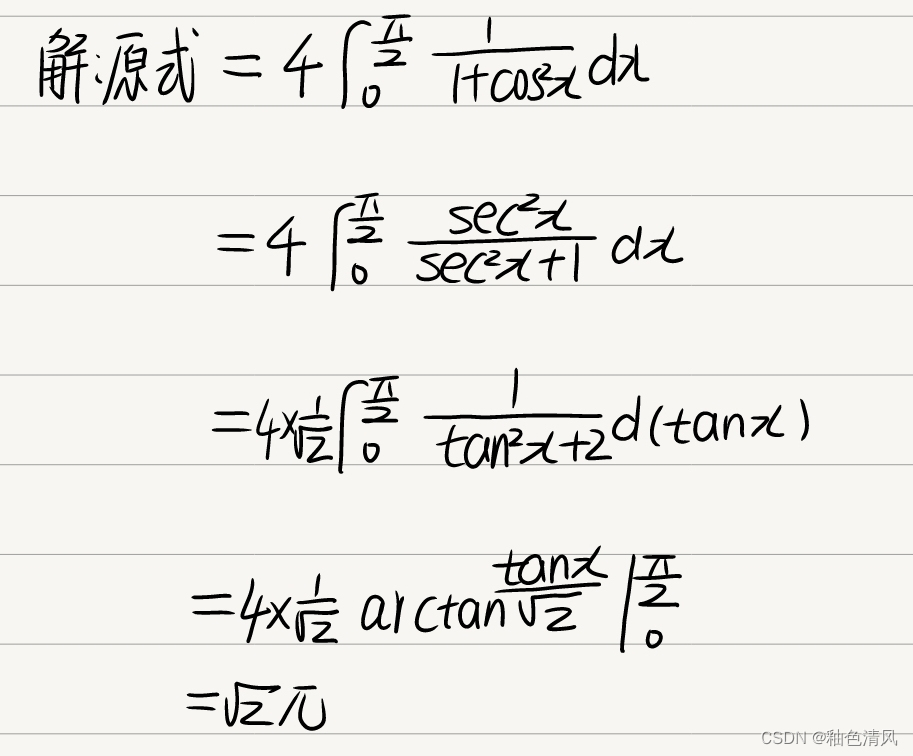 解:源式 = 4∫₀^(π/2) 1/(1+cos²x) dx
= 4∫₀^(π/2) sec²x/(sec²x+1) dx
= 4×1/√2 ∫₀^(π/2) 1/(tan²x+2) d(tanx)
= 4×1/√2 arctan tanx/√2 |₀^(π/2)
= √2π
CSDN @釉色清风